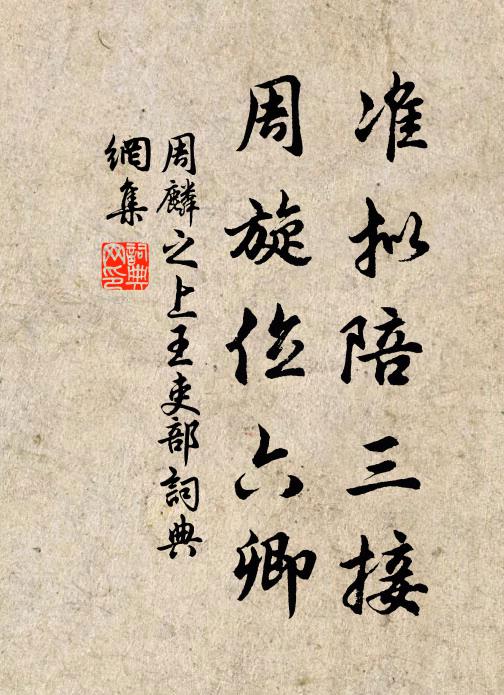 准拟陪三接
周旋位六卿
周麟之上王吏部詞典
網集
詞典
网印